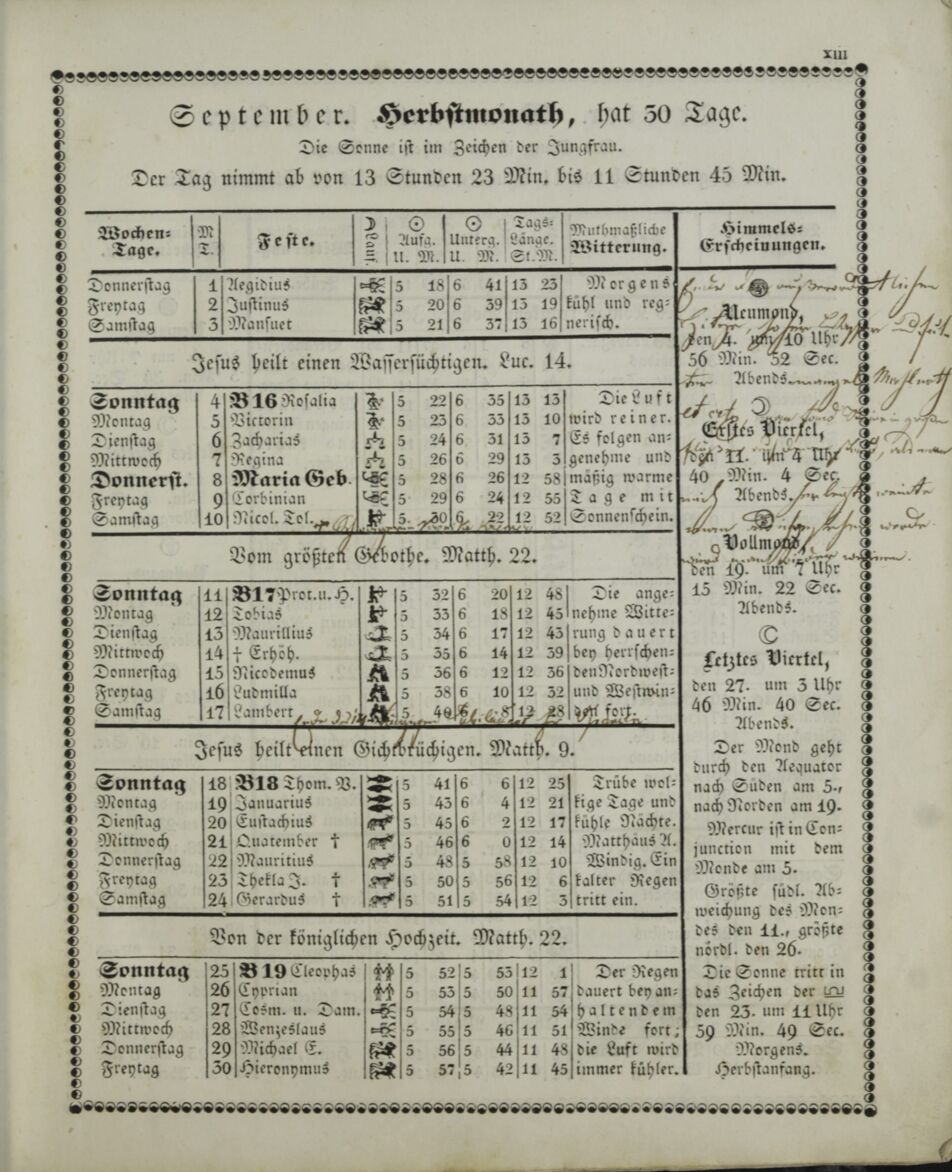 xiii
September. Herbstmonath, hat 30 Tage.
Die Sonne ist im Zeichen der Jungfrau.
Der Tag nimmt ab von 13 Stunden 23 Min. bis 11 Stunden 45 Min.
Wochen-Tage. | M. T. | Feste. | ☽ Lauf | ☉ Aufg. U. M. | ☉ Unterg. U. M. | Tags-Länge. St. M. | Muthmaßliche Witterung. | Himmels-Erscheinungen.
Donnerstag 1 Aegidius 5 18 6 41 13 23 Morgens
Freytag 2 Justinus 5 20 6 39 13 19 kühl und reg-
Samstag 3 Mansuet 5 21 6 37 13 16 nerisch.
Jesus heilt einen Wassersüchtigen. Luc. 14.
Sonntag 4 B16 Rosalia 5 22 6 35 13 13 Die Luft
Montag 5 Victorin 5 23 6 33 13 10 wird reiner.
Dienstag 6 Zacharias 5 24 6 31 13 7 Es folgen an-
Mittwoch 7 Regina 5 26 6 29 13 3 genehme und
Donnerst. 8 Maria Geb. 5 28 6 26 12 58 mäßig warme
Freytag 9 Corbinian 5 29 6 24 12 55 Tage mit
Samstag 10 Nicol. Tol. 5 30 6 22 12 52 Sonnenschein.
Vom größten Gebothe. Matth. 22.
Sonntag 11 B17 Prot. u. H. 5 32 6 20 12 48 Die ange-
Montag 12 Tobias 5 33 6 18 12 45 nehme Witte-
Dienstag 13 Maurillius 5 34 6 17 12 43 rung dauert
Mittwoch 14 † Erhöh. 5 35 6 14 12 39 bey herrschen-
Donnerstag 15 Nicodemus 5 36 6 12 12 36 den Nordwest-
Freytag 16 Ludmilla 5 38 6 10 12 32 und Westwin-
Samstag 17 Lambert 5 40 6 8 12 28 den fort.
Jesus heilt einen Gichtbrüchigen. Matth. 9.
Sonntag 18 B18 Thom. V. 5 41 6 6 12 25 Trübe wol-
Montag 19 Januarius 5 43 6 4 12 21 kige Tage und
Dienstag 20 Eustachius 5 45 6 2 12 17 kühle Nächte.
Mittwoch 21 Quatember † 5 46 6 0 12 14 Matthäus A.
Donnerstag 22 Mauritius 5 48 5 58 12 10 Windig. Ein
Freytag 23 Thekla J. † 5 50 5 56 12 6 kalter Regen
Samstag 24 Gerardus † 5 51 5 54 12 3 tritt ein.
Von der königlichen Hochzeit. Matth. 22.
Sonntag 25 B19 Cleophas 5 52 5 53 12 1 Der Regen
Montag 26 Cyprian 5 53 5 50 11 57 dauert bey an-
Dienstag 27 Cosm. u. Dam. 5 54 5 48 11 54 haltendem
Mittwoch 28 Wenzeslaus 5 55 5 46 11 51 Winde fort;
Donnerstag 29 Michael E. 5 56 5 44 11 48 die Luft wird
Freytag 30 Hieronymus 5 57 5 42 11 45 immer kühler.
Neumond,
den 4. um 10 Uhr
56 Min. 52 Sec.
Abends.
Erstes Viertel,
den 11. um 4 Uhr
40 Min. 4 Sec.
Abends.
Vollmond,
den 19. um 7 Uhr
15 Min. 22 Sec.
Abends.
Letztes Viertel,
den 27. um 3 Uhr
46 Min. 40 Sec.
Abends.
Der Mond geht
durch den Aequator
nach Süden am 5.,
nach Norden am 19.
Mercur ist in Con-
junction mit dem
Monde am 5.
Größte südl. Ab-
weichung des Mon-
des den 11., größte
nördl. den 26.
Die Sonne tritt in
das Zeichen der ♎
den 23. um 11 Uhr
59 Min. 49 Sec.
Morgens.
Herbstanfang.